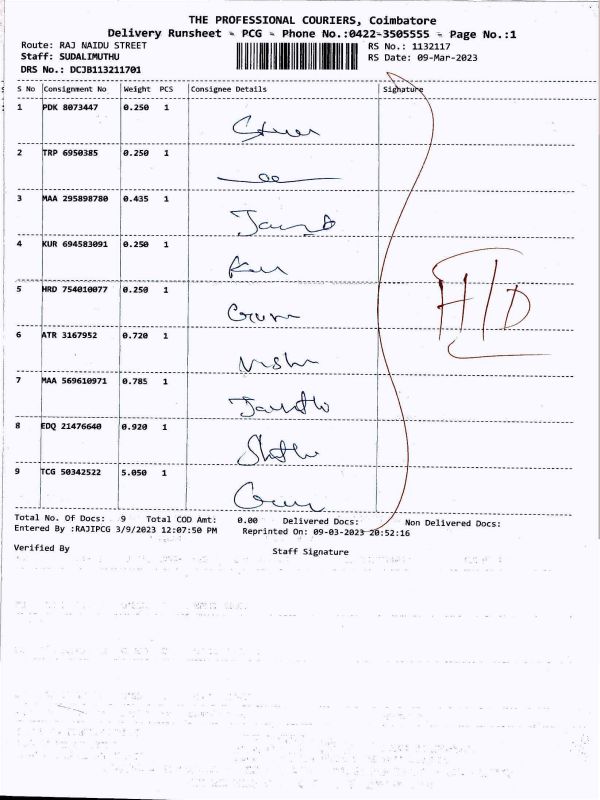 THE PROFESSIONAL COURIERS, Coimbatore
Delivery Runsheet - PCG - Phone No.:0422-3505555 - Page No.:1
Route: RAJ NAIDU STREET
RS No.: 1132117
Staff: SUDALIMUTHU
RS Date: 09-Mar-2023
DRS No.: DCJB113211701
S No Consignment No Weight PCS Consignee Details Signature
1 PDK 8073447 0.250 1
2 TRP 6950385 0.250 1
3 MAA 295898780 0.435 1
4 KUR 694583091 0.250 1
5 HRD 754010077 0.250 1
H/D
6 ATR 3167952 0.720 1
7 MAA 569610971 0.785 1
8 EDQ 21476640 0.920 1
9 TCG 50342522 5.050 1
Total No. Of Docs: 9 Total COD Amt: 0.00 Delivered Docs: Non Delivered Docs:
Entered By :RAJIPCG 3/9/2023 12:07:50 PM Reprinted On: 09-03-2023 20:52:16
Verified By Staff Signature